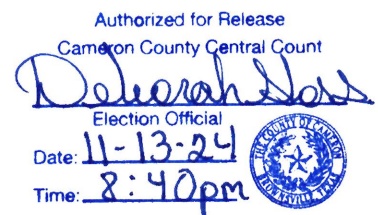 Authorized for Release
Cameron County Central Count
Deborah
Election Official
Date: 11-13-24
Time: 8:40pm
THE COUNTY OF CAMERON
BROWNSVILLE, TEXAS